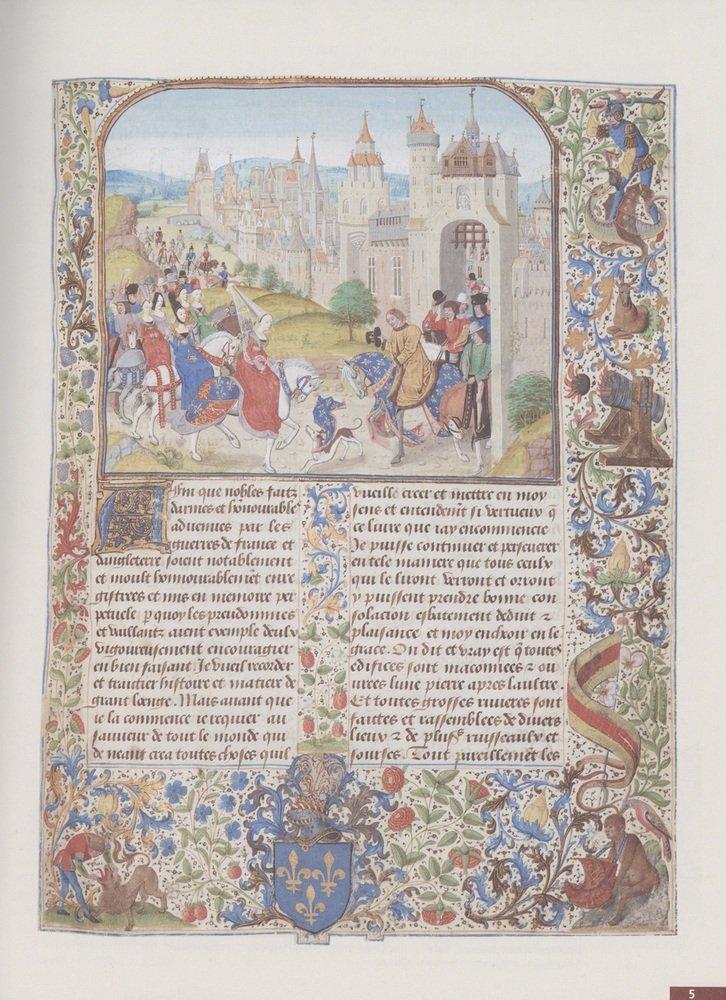 Afin que nobles faitz
darmes et honnourables
aduenues par les
guerres de france et
dangleterre soient notablement
et moult honnourablemēt enre
gistrees et mis en memoire per
petuele p quoy les preudommes
et vaillantz aient exemple deulx
vigoureusement encouragier
en bien faisant. Je vueil recorder
et traictier histoire et matiere de
grant loenge. Mais auant que
ie la commence ie requier au
sauueur de tout le monde qui
de neant crea toutes choses quil
vueille creer et mettre en moy
sens et entendemēt si vertueux q̄
ce liure que iay encommencie
Je puisse continuer et perseuerer
en tele maniere que tous ceulx
qui le liront verront et orront
y puissent prendre bonne con
solacion esbatement deduit ⁊
plaisance et moy encheoir en le
grace. On dit et vray est q̄ toutes
edifices sont maconnees ⁊ ou
urees lune pierre apres laultre.
Et toutes grosses riuieres sont
faittes et rassemblees de diuers
lieux ⁊ de plusrs ruisseaulx et
sourses. Tout pareillement les
5